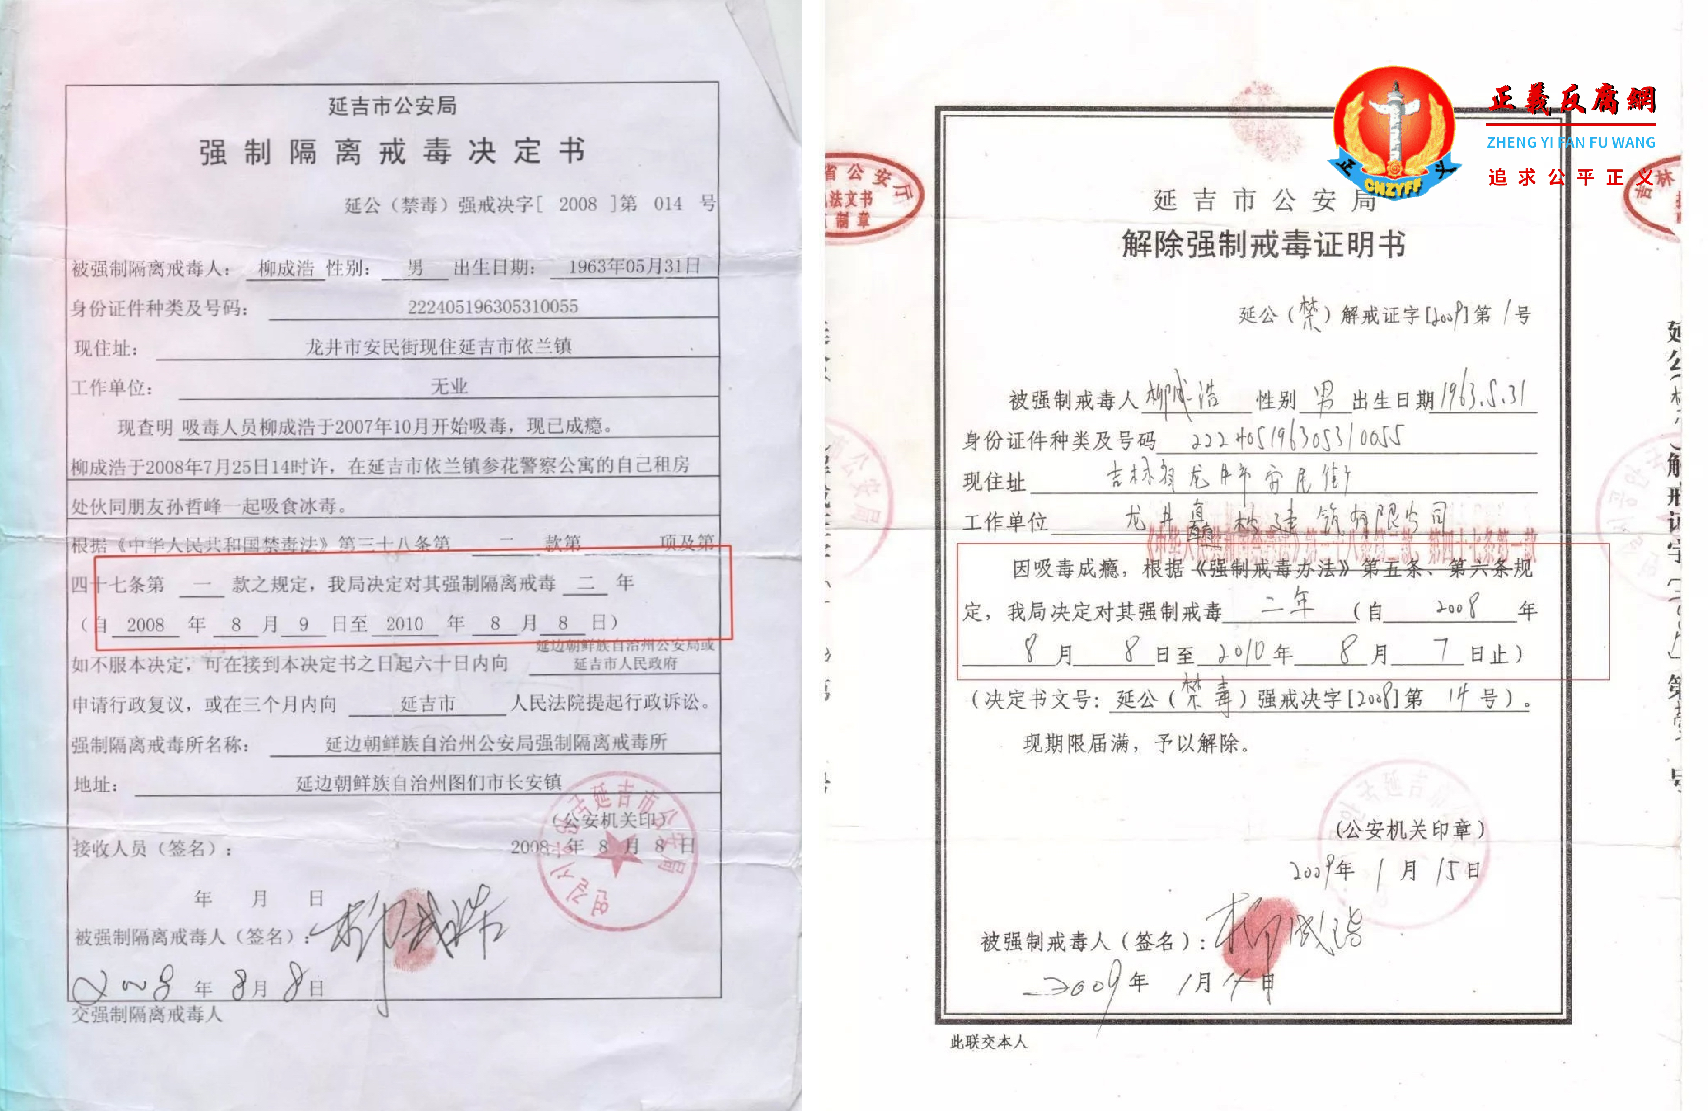 延吉市公安局
强制隔离戒毒决定书
延公（禁毒）强戒决字[ 2008 ]第 014 号
被强制隔离戒毒人： 柳成浩 性别： 男 出生日期： 1963年05月31日
身份证件种类及号码： 222405196305310055
现住址： 龙井市安民街现住延吉市依兰镇
工作单位： 无业
现查明 吸毒人员柳成浩于2007年10月开始吸毒，现已成瘾。
柳成浩于2008年7月25日14时许，在延吉市依兰镇参花警察公寓的自己租房
处伙同朋友孙哲峰一起吸食冰毒。
根据《中华人民共和国禁毒法》第三十八条第 二 款第 项及第
四十七条第 一 款之规定，我局决定对其强制隔离戒毒 二 年
（自 2008 年 8 月 9 日至 2010 年 8 月 8 日）
如不服本决定，可在接到本决定书之日起六十日内向 延边朝鲜族自治州公安局或
延吉市人民政府
申请行政复议，或在三个月内向 延吉市 人民法院提起行政诉讼。
强制隔离戒毒所名称： 延边朝鲜族自治州公安局强制隔离戒毒所
地址： 延边朝鲜族自治州图们市长安镇
（公安机关印）
接收人员（签名）： 2008 年 8 月 8 日
年 月 日
被强制隔离戒毒人（签名）： 柳成浩
2008 年 8月 8日
交强制隔离戒毒人
延吉市公安局
正義反腐網
ZHENG YI FAN FU WANG
追求公平正义
CNZYFF
省公安厅
法文书
制章
吉林
延吉市公安局
解除强制戒毒证明书
延公（禁）解戒证字[2009]第 1 号
被强制戒毒人 柳成浩 性别 男 出生日期 1963.5.31
身份证件种类及号码 222405196305310055
现住址 吉林省龙井市安民街
工作单位 龙井 建筑有限公司
《中华人民共和国禁毒法》第三十八条第二款、第四十七条第一款
因吸毒成瘾，根据《强制戒毒办法》第五条、第六条规
定，我局决定对其强制戒毒 二年 （自 2008 年
8 月 8 日至 2010 年 8 月 7 日止）
（决定书文号：延公（禁毒）强戒决字[2008]第 14 号）。
现期限届满，予以解除。
（公安机关印章）
2009年 1 月 15日
被强制戒毒人（签名）：柳成浩
2009年 1月
此联交本人